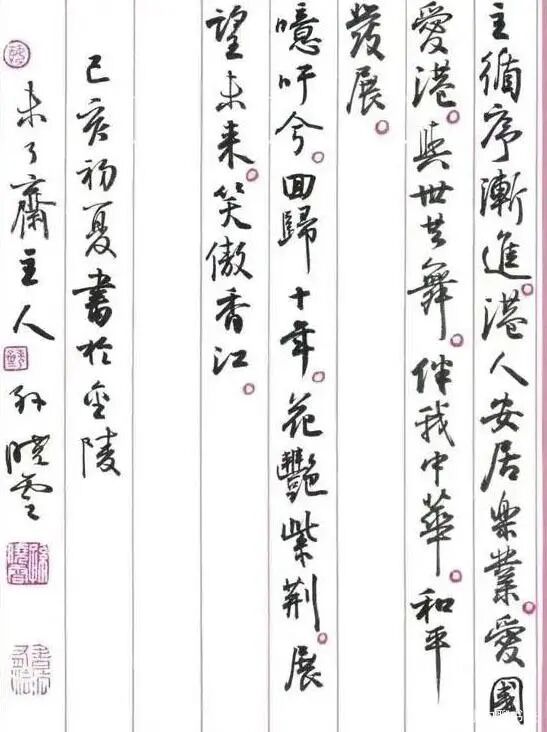 主循序漸進。港人安居樂業。愛國
愛港。與世共舞。伴我中華。和平
發展。
噫吁兮。回歸十年。花艷紫荊。展
望未来。笑傲香江。
己亥初夏書於金陵
未了齋主人 孫曉雲